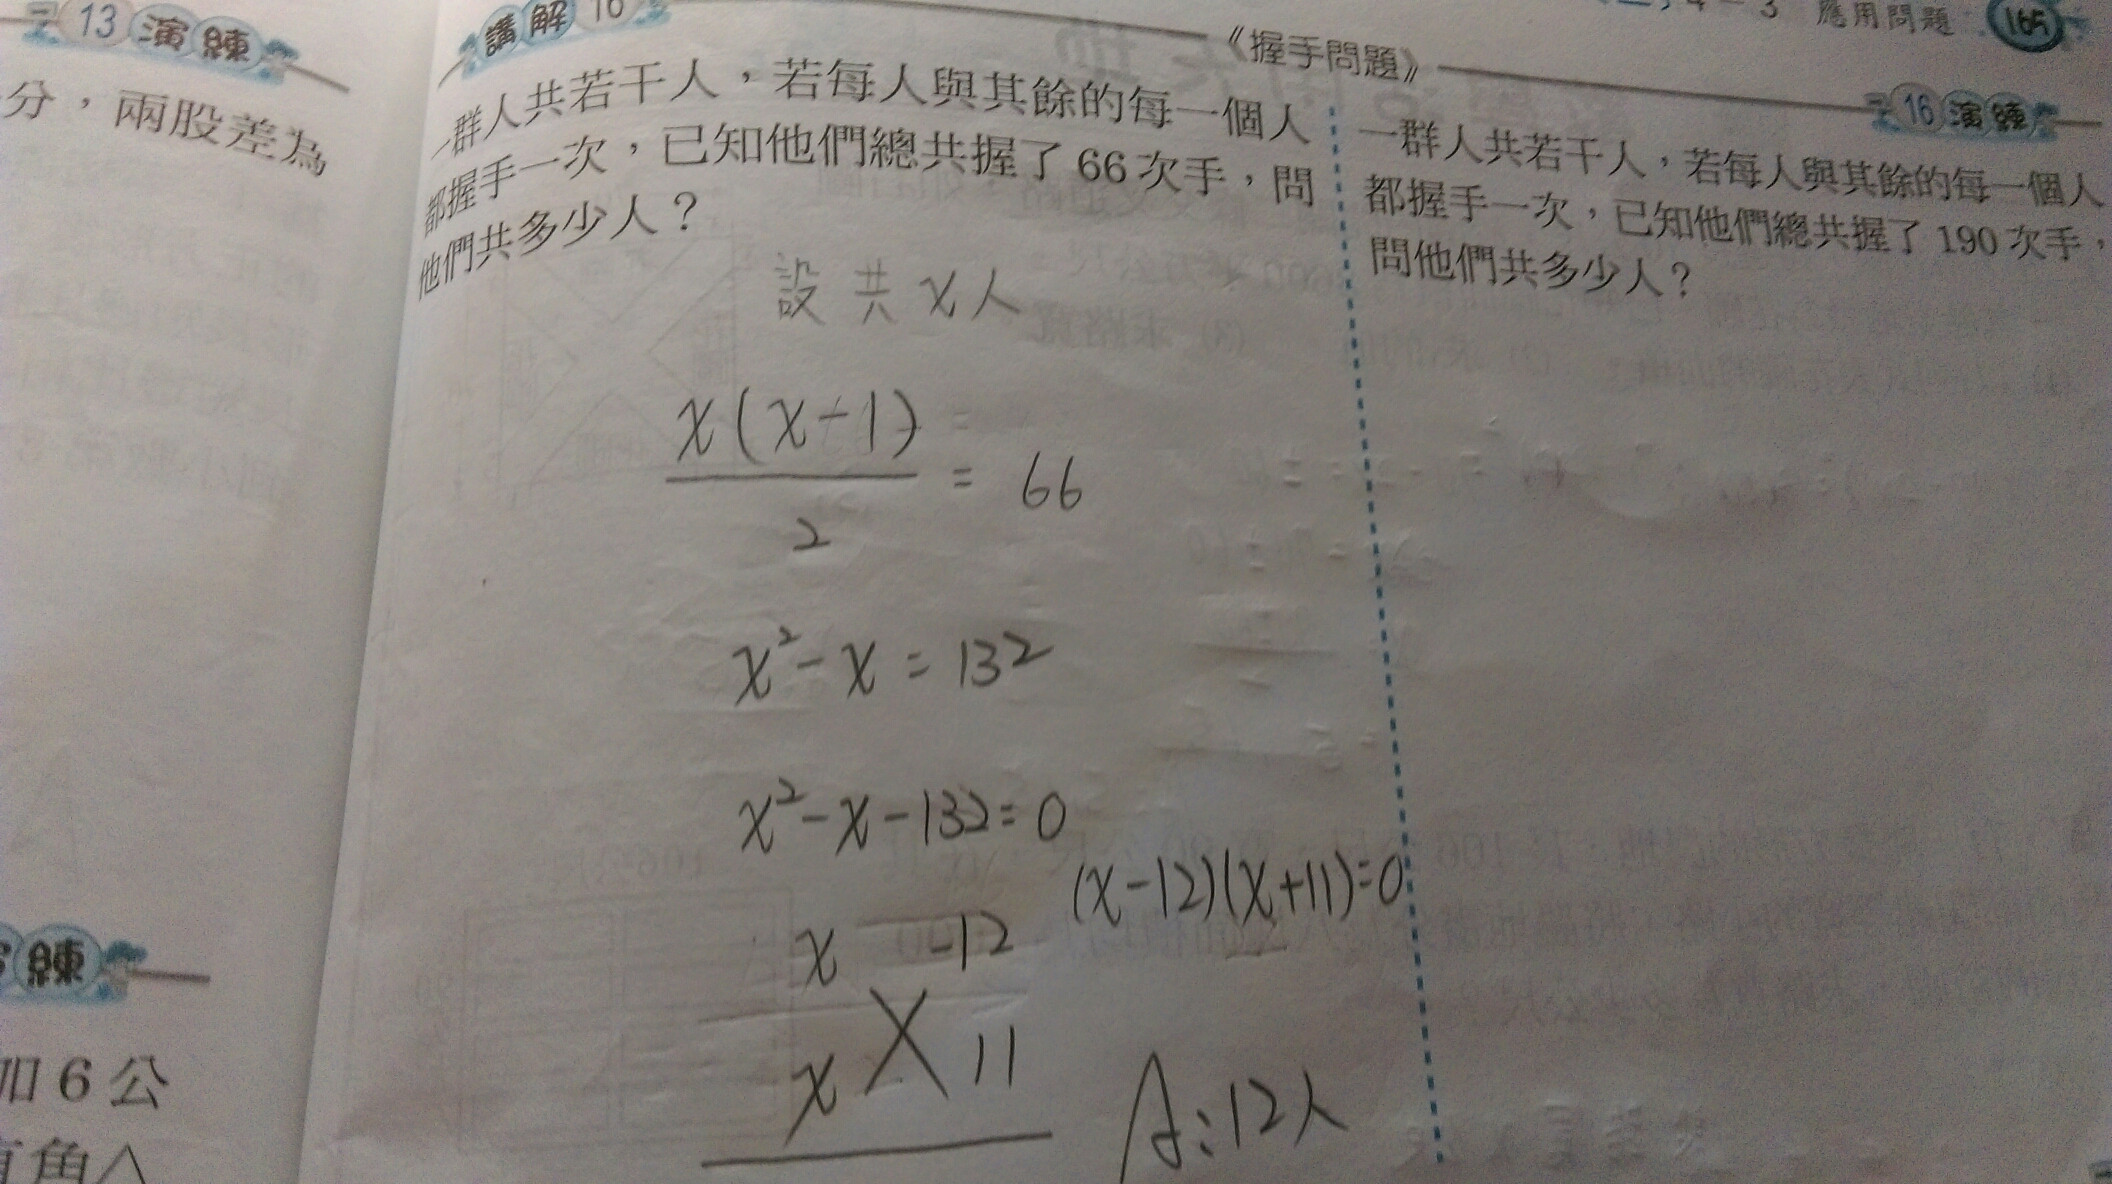 13 演練
分，兩股差為
演練
加6公
直角△
講解 16
《握手問題》
4-3 應用問題 165
一群人共若干人，若每人與其餘的每一個人
都握手一次，已知他們總共握了66次手，問
他們共多少人？
設共x人
x(x-1)/2 = 66
x²-x=132
x²-x-132=0
(x-12)(x+11)=0
x -12
x 11
A:12人
16 演練
一群人共若干人，若每人與其餘的每一個人
都握手一次，已知他們總共握了190次手，
問他們共多少人？